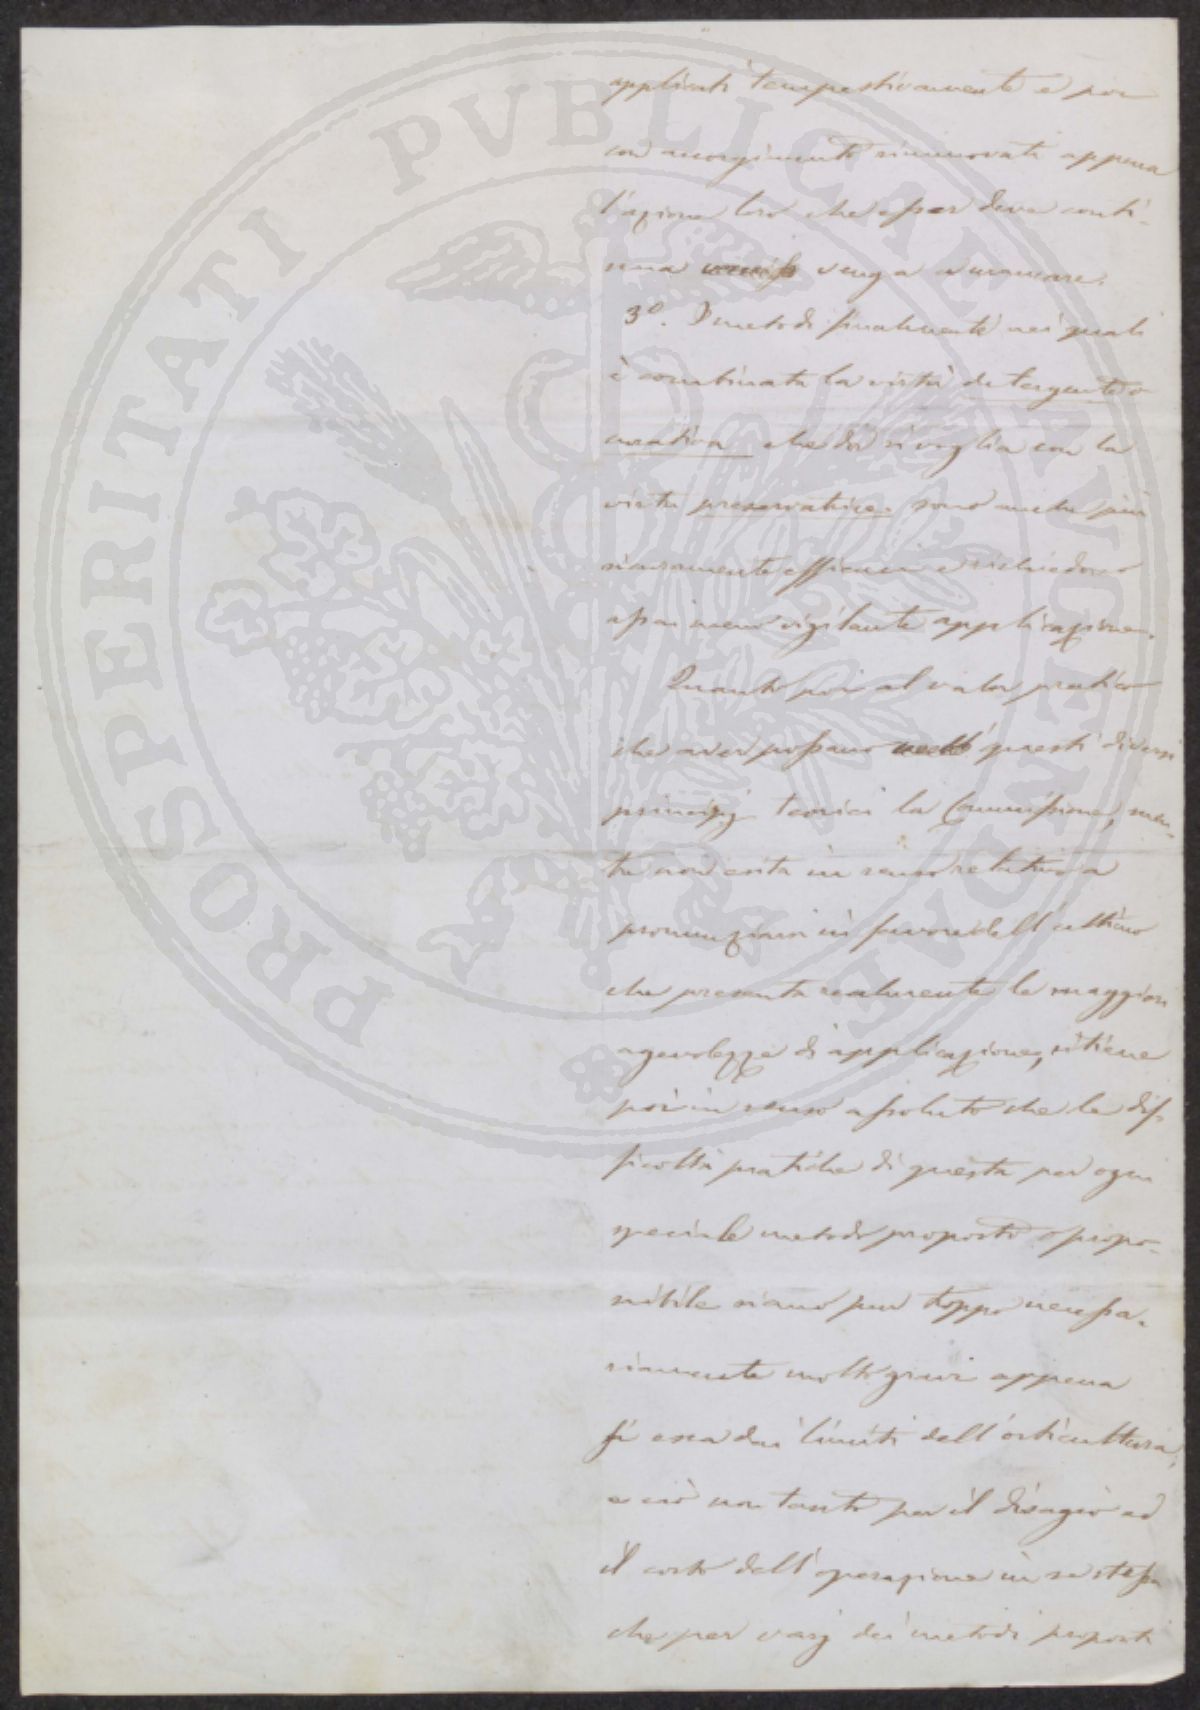 PROSPERITATI PVBLICAE AVGENDAE
applicati tempestivamente e poi
con accorgimento rinnovati appena
l'azione loro che esser deve conti-
nua venga a mancare.
3º. I metodi finalmente nei quali
è combinata la virtù detergente o
curativa che dir si voglia con la
virtù preservatrice. sono anche più
sicuramente efficaci e richiedono
assai meno vigilante applicazione.
Quanto poi al valor pratico
che aver possano questi diversi
principj teorici la Commissione, men-
tre non esita in senso relativo a
pronunziarsi in favore dell'ultimo
che presenta realmente le maggiori
agevolezze di applicazione, ritiene
poi in senso assoluto che le dif-
ficoltà pratiche di questa per ogni
speciale metodo proposto o propo-
nibile siano pur troppo necessa-
riamente molto gravi appena
si esca dai limiti dell'orticultura,
e ciò non tanto per il disagio ed
il costo dell'operazione in se stessa
che per varj dei metodi proposti